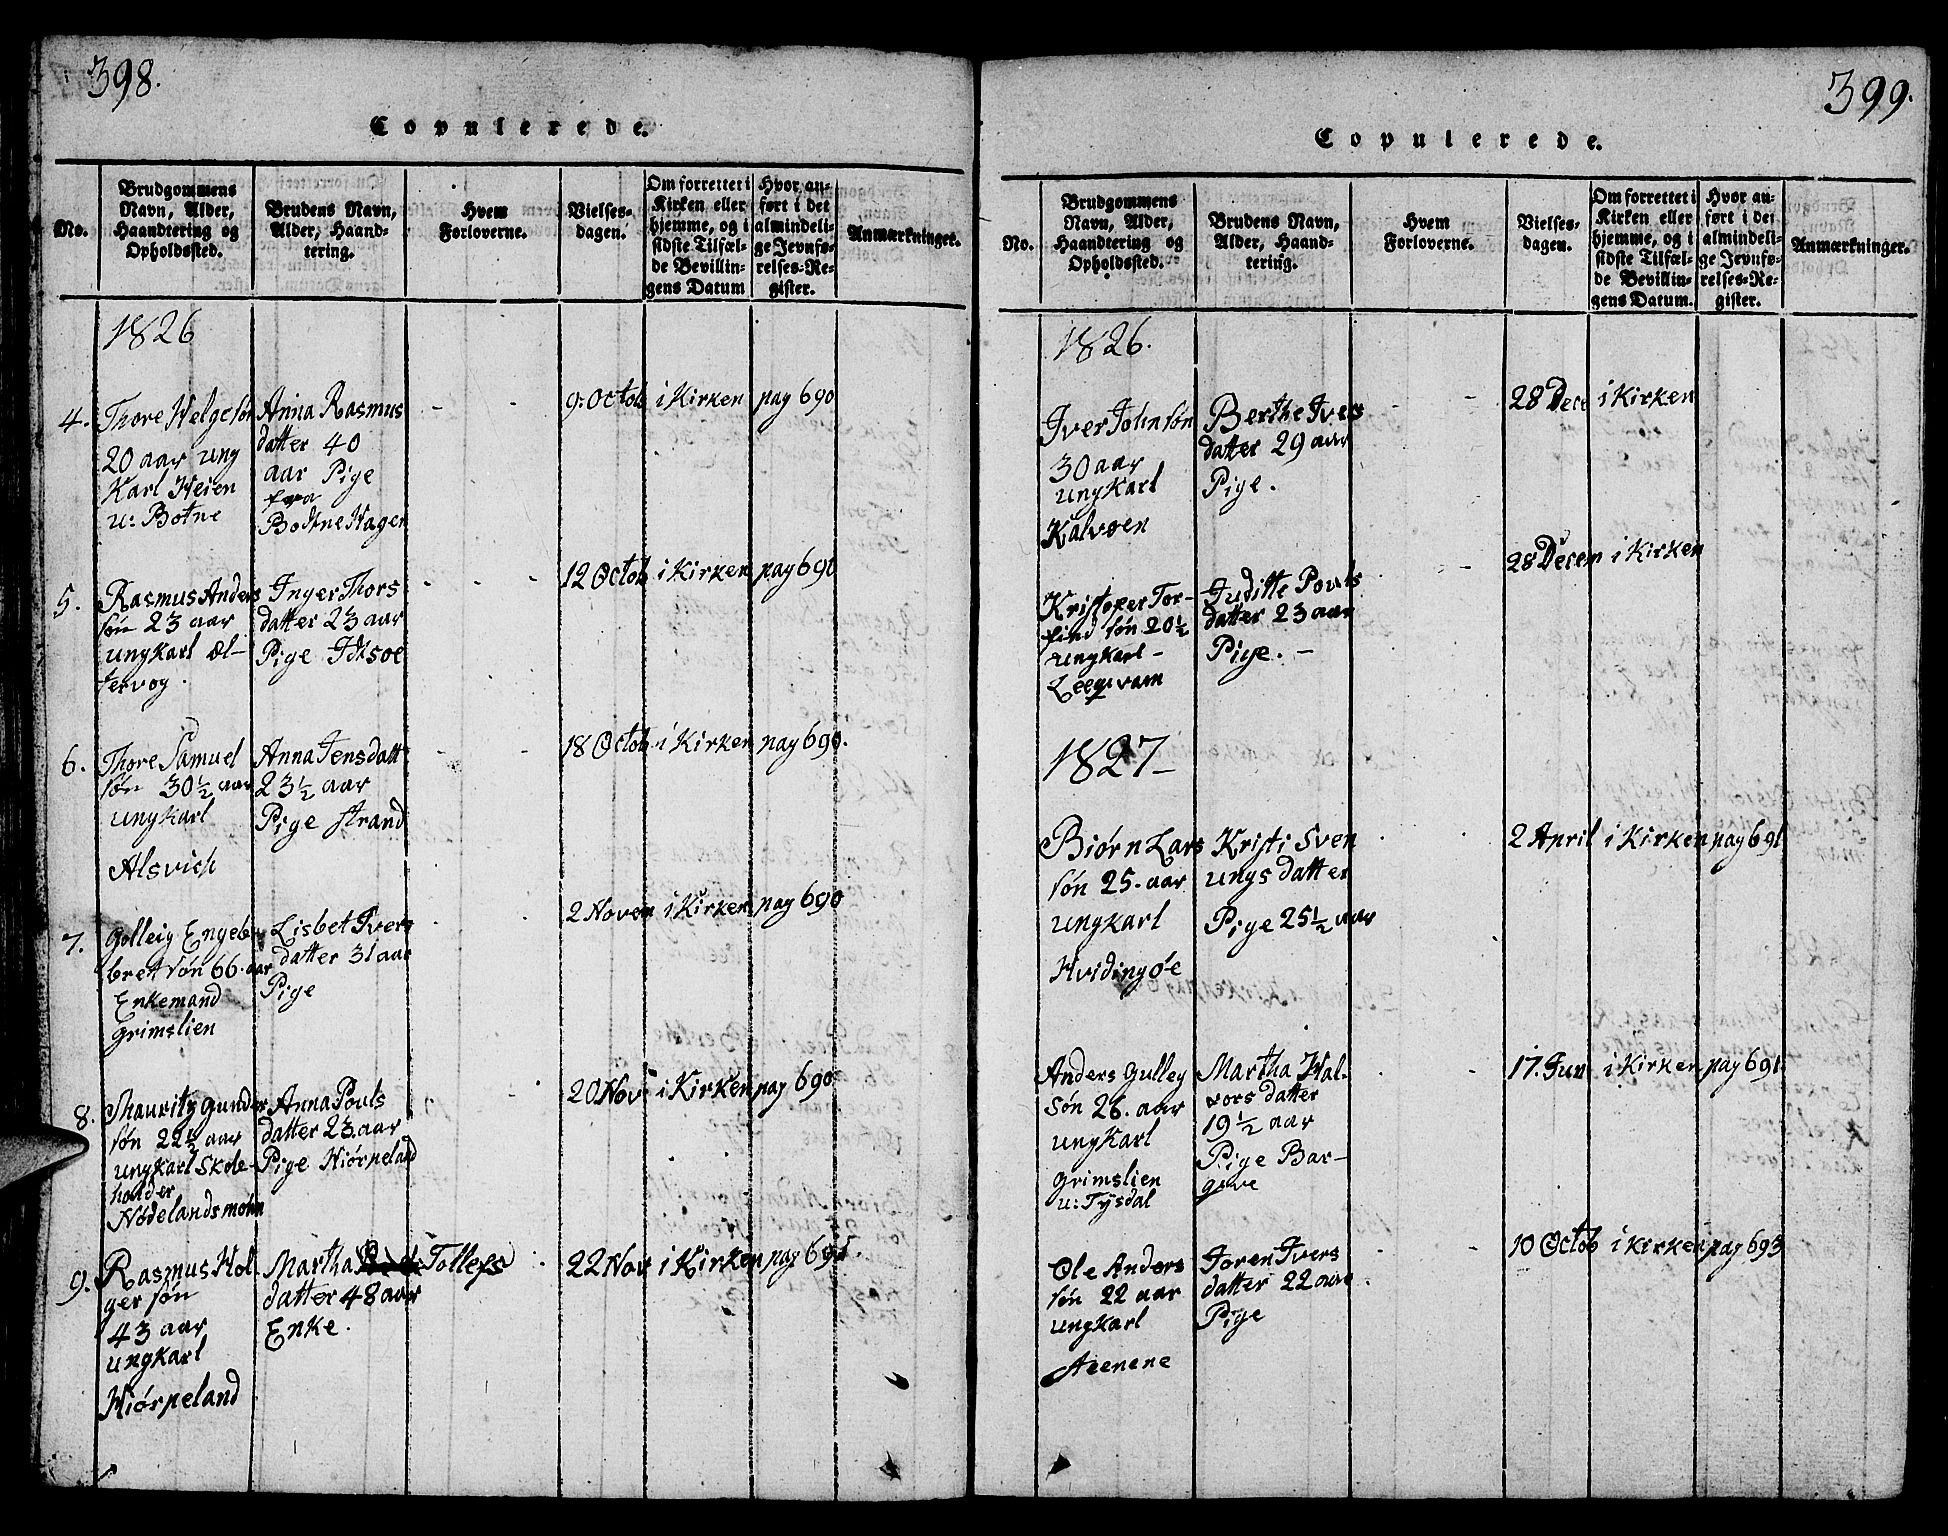 398.
Copulerede.
No.
Brudgommens Navn, Alder, Haandtering og Opholdssted.
Brudens Navn, Alder, Haandtering.
Hvem Forloverne.
Vielsesdagen.
Om forrettet i Kirken eller hjemme, og i sidste Tilfælde Bevillingens Datum
Hvor anført i det almindelige Jevnførelses-Register.
Anmærkninger.
1826
4.
Thore Helgesøn
20 aar ung
Karl Heien
u: Botne
Anna Rasmus
datter 40
aar Pige
fra
Bodtne Hagen
9: Octob
i Kirken
pag 690
5.
Rasmus Anders
søn 23 aar
ungkarl Øl-
tervog.
Inger Thors
datter 23 aar
Pige Idsøe
12 Octob
i Kirken
pag 690
6.
Thore Samuel
søn 30½ aar
ungkarl
Alsvich
Anna Jensdatt
23½ aar
Pige Strand
18 Octob
i Kirken
pag 690.
7.
Golleig Engeb
bret søn 66. aar
Enkemand
Grimslien
Lisbet Ivers
datter 31 aar
Pige
2 Novem
i Kirken
pag 690
8.
Mauritz Gunder
søn 22½ aar
ungkarl Skole-
holder
Nødelandsmohn
Anna Pouls
datter 23. aar
Pige Hiørpeland
20 Nov
i Kirken
pag 690
9.
Rasmus Hol
ger søn
43 aar
ungkarl
Hiørpeland
Martha Tollefs
datter 48 aar
Enke.
22 Nov
i Kirken
pag 691.
399.
Copulerede.
No.
Brudgommens Navn, Alder, Haandtering og Opholdssted.
Brudens Navn, Alder, Haandtering.
Hvem Forloverne.
Vielsesdagen.
Om forrettet i Kirken eller hjemme, og i sidste Tilfælde Bevillingens Datum.
Hvor anført i det almindelige Jevnførelses-Register.
Anmærkninger.
1826.
Iver Johnsøn
30 aar
ungkarl
Kalvøen
Berthe Ivers
datter 29 aar
Pige.
28 Dece
i Kirken
Kristofer Tor-
find søn 20½
ungkarl-
Leeqvam
Juditte Pouls
datter 23 aar
Pige. -
28 Decem
i Kirken
1827-
Biørn Lars
søn 25. aar
ungkarl
Hvidingøe
Kristi Sven
ungs datter
Pige 25½ aar
2 April
i Kirken
pag 691
Anders Gulley
søn 26. aar
ungkarl
Grimslien
u: Tysdal
Martha Hal-
vors datter
19½ aar
Pige Bar-
17. Jun
i Kirken
pag 691
Ole Anders
søn 22 aar
ungkarl
Aeenene
Joren Ivers
datter 22 aar.
Pige
10 Octob
i Kirken
pag 693